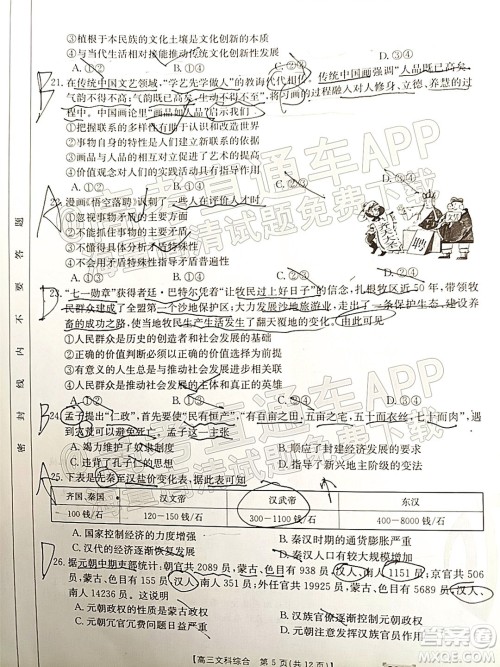 ③植根于本民族的文化土壤是文化创新的基础
④与当代文化相适应推动传统文化创新性发展
A.①② B.①③ C.②④ D.③④
B
21.在传统中国文艺领域,“学艺先学做人”的教诲代代相传,传统中国画强调“人品既已高矣,
气韵不得不高;气韵既已高矣,生动不得不至”,将习画的过程融入对人修身、立德、养慧的过
程中。中国画论里“画品如人品”启示我们
①世界观和人生观的培育有助于认识和改造世界
②事物自身的特性是人们价值观形成的基础
③画品与人品之间的联系是人为事物的联系
④价值观对人们的实践活动具有推动指导作用
A.①② B.①③ C.②④ D.③④
A
22.漫画《悟空落聘》讽刺了一些人在评价人才时
①忽视事物矛盾的特殊性
②不能抓住事物的主要矛盾
③不能全面看问题
④不能用矛盾特殊性指导矛盾普遍性
A.①② B.①③ C.②④ D.③④
D
23.“七一勋章”获得者廷·巴特尔凭着“让牧民过上好日子”的信念,扎根牧区近50年,带领牧
民群众建成了全盟第一个沙地保护区;大力发展沙地旅游业,走出了一条保护生态、建设养
畜的成功之路,使牧民生产生活发生了翻天覆地的变化。由此可见
①人民群众是历史的主体和历史的创造者
②正确的价值判断都能推动社会的发展
③有意义的人生总是在奉献中创造价值
④人民群众是推动社会发展的基本力量
A.①② B.②③ C.②④ D.③④
B
24.孟子提出“仁政”,首先要使“民有恒产”,“有百亩之田,五亩之宅,五十而衣丝,七十而食肉,
灾荒之时可以避免死亡。孟子这一主张
A.竭力维护奴隶制度 B.顺应了封建经济的发展
C.违背了孔子仁的思想 D.指导了新兴地主阶级的变法
A
25.下表是先秦至汉盐价变化表,据此表可知
齐国、秦国 汉文帝 汉武帝 东汉
100钱/石 120-150钱/石 300-1100钱/石 400-8000钱/石
A.国家控制经济的力度增强 B.秦汉时期的通货膨胀严重
C.汉代的经济发展日渐衰退 D.秦汉政府重视基础经济
D
26.据元朝中期史部统计:朝官共2089员,蒙古、色目938员,汉人、南人1151员;京官共506
员,蒙古、色目155员,汉人、南人351员;外任官共19925员,蒙古、色目5689员,汉人、
南人14236员。这表明
A.元朝政权的性质是蒙古政权 B.汉族官僚逐渐控制元朝政权
C.元朝冗官冗费问题日益严重 D.
【高三文科综合 第5页(共12页)】
密 封 线 内 不 要 答 题
直通车APP
高清试题免费下载
答案圈